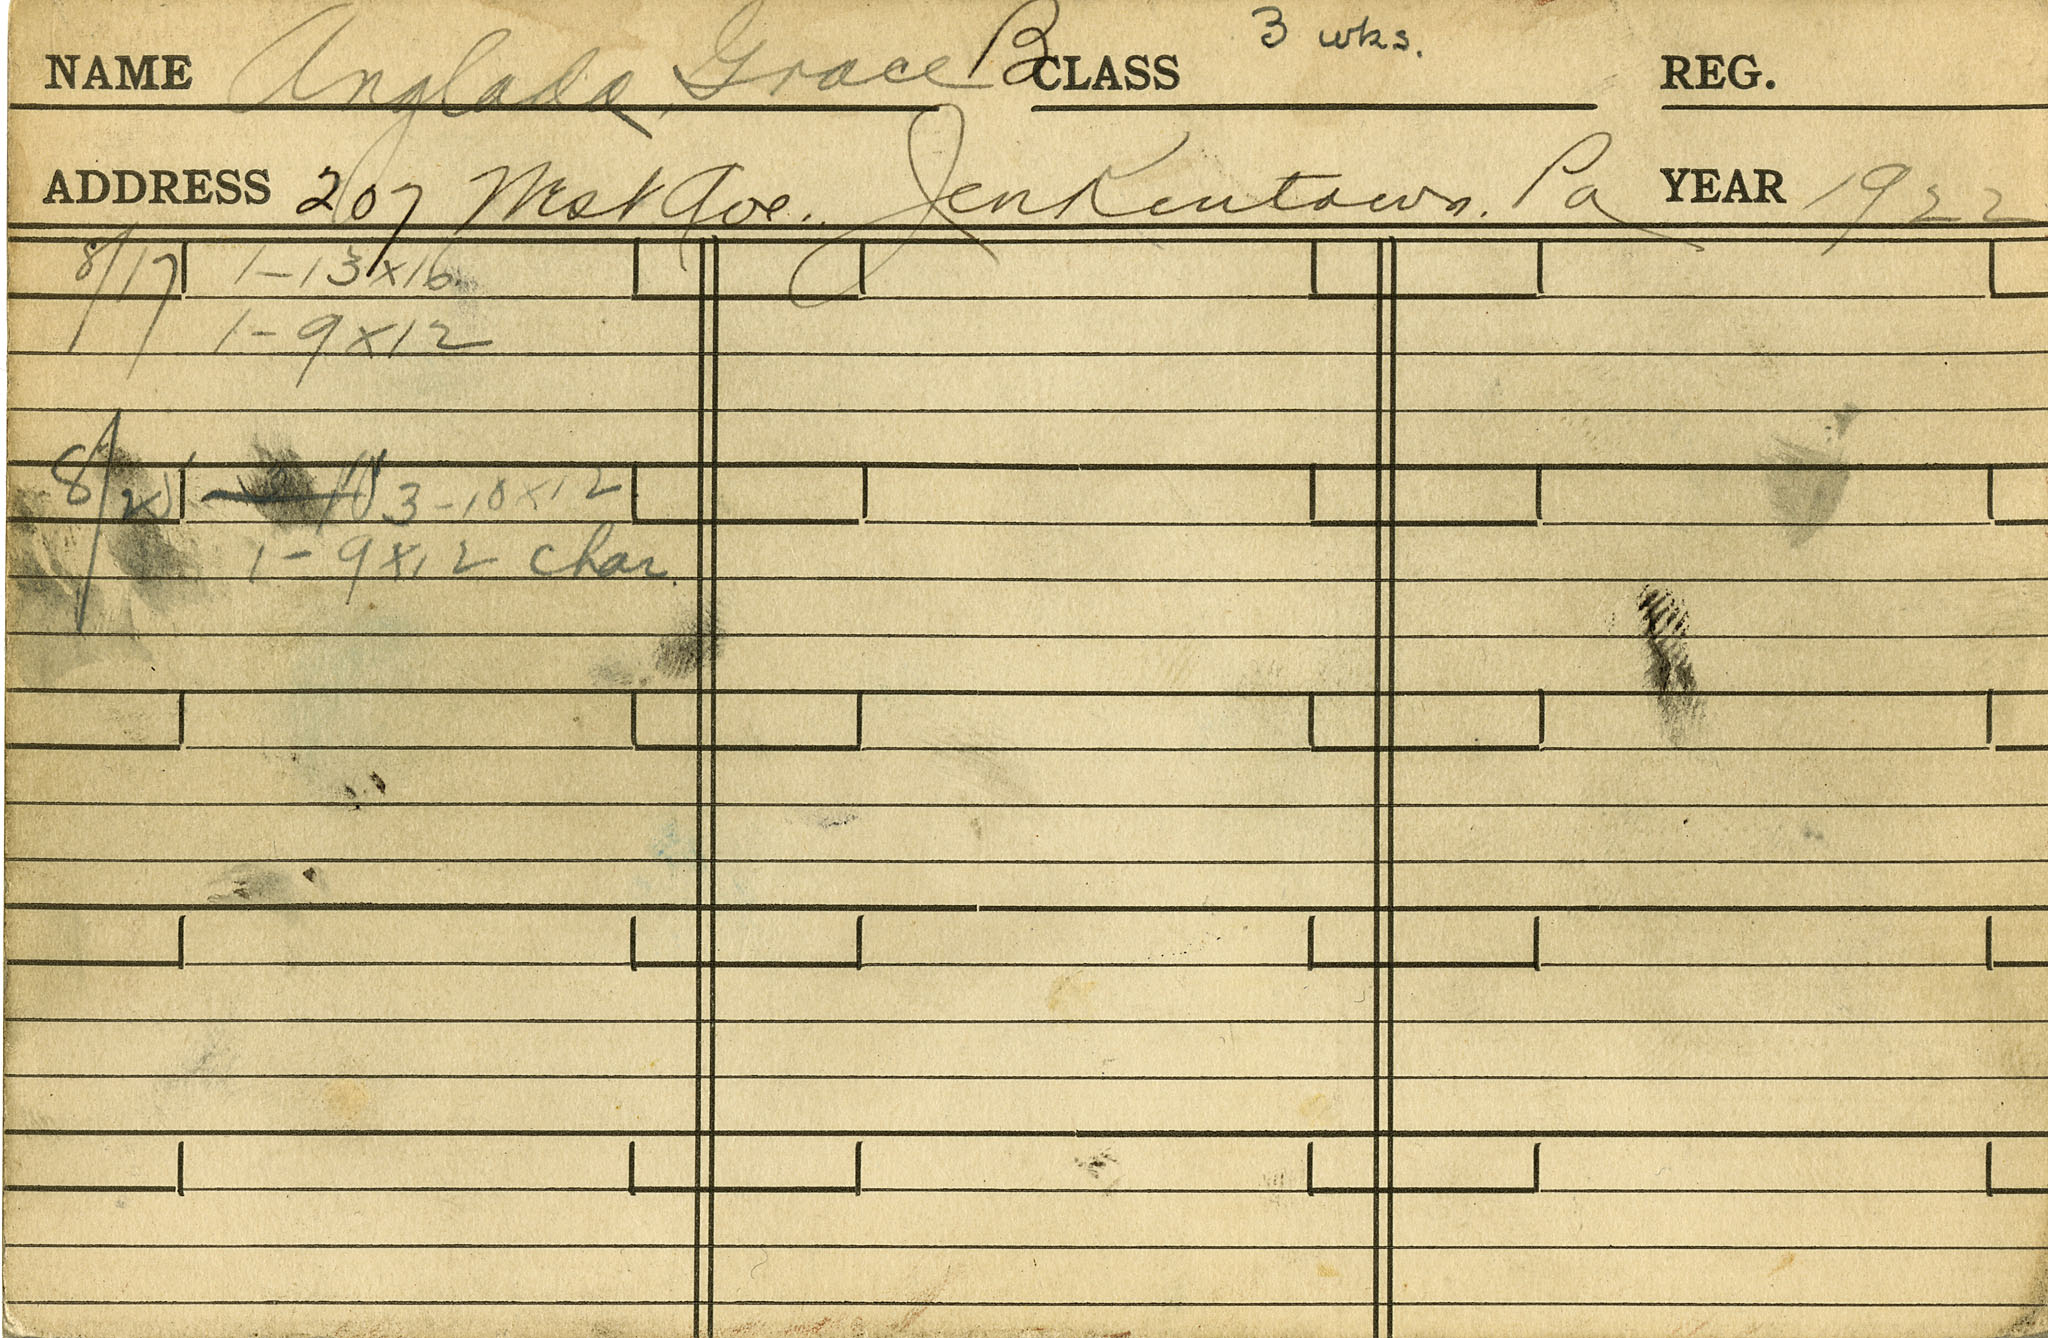 NAME Anglada, Grace B CLASS 3 wks. REG.
ADDRESS 207 West Ave. Jenkintown. Pa YEAR 1922
8/17 1-13x16
1-9x12
8/ 3-10x12
1-9x12 char.